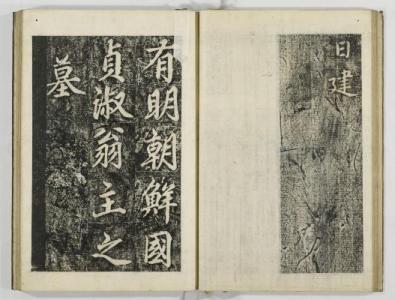 日建
有明朝鮮國
貞淑翁主之
墓